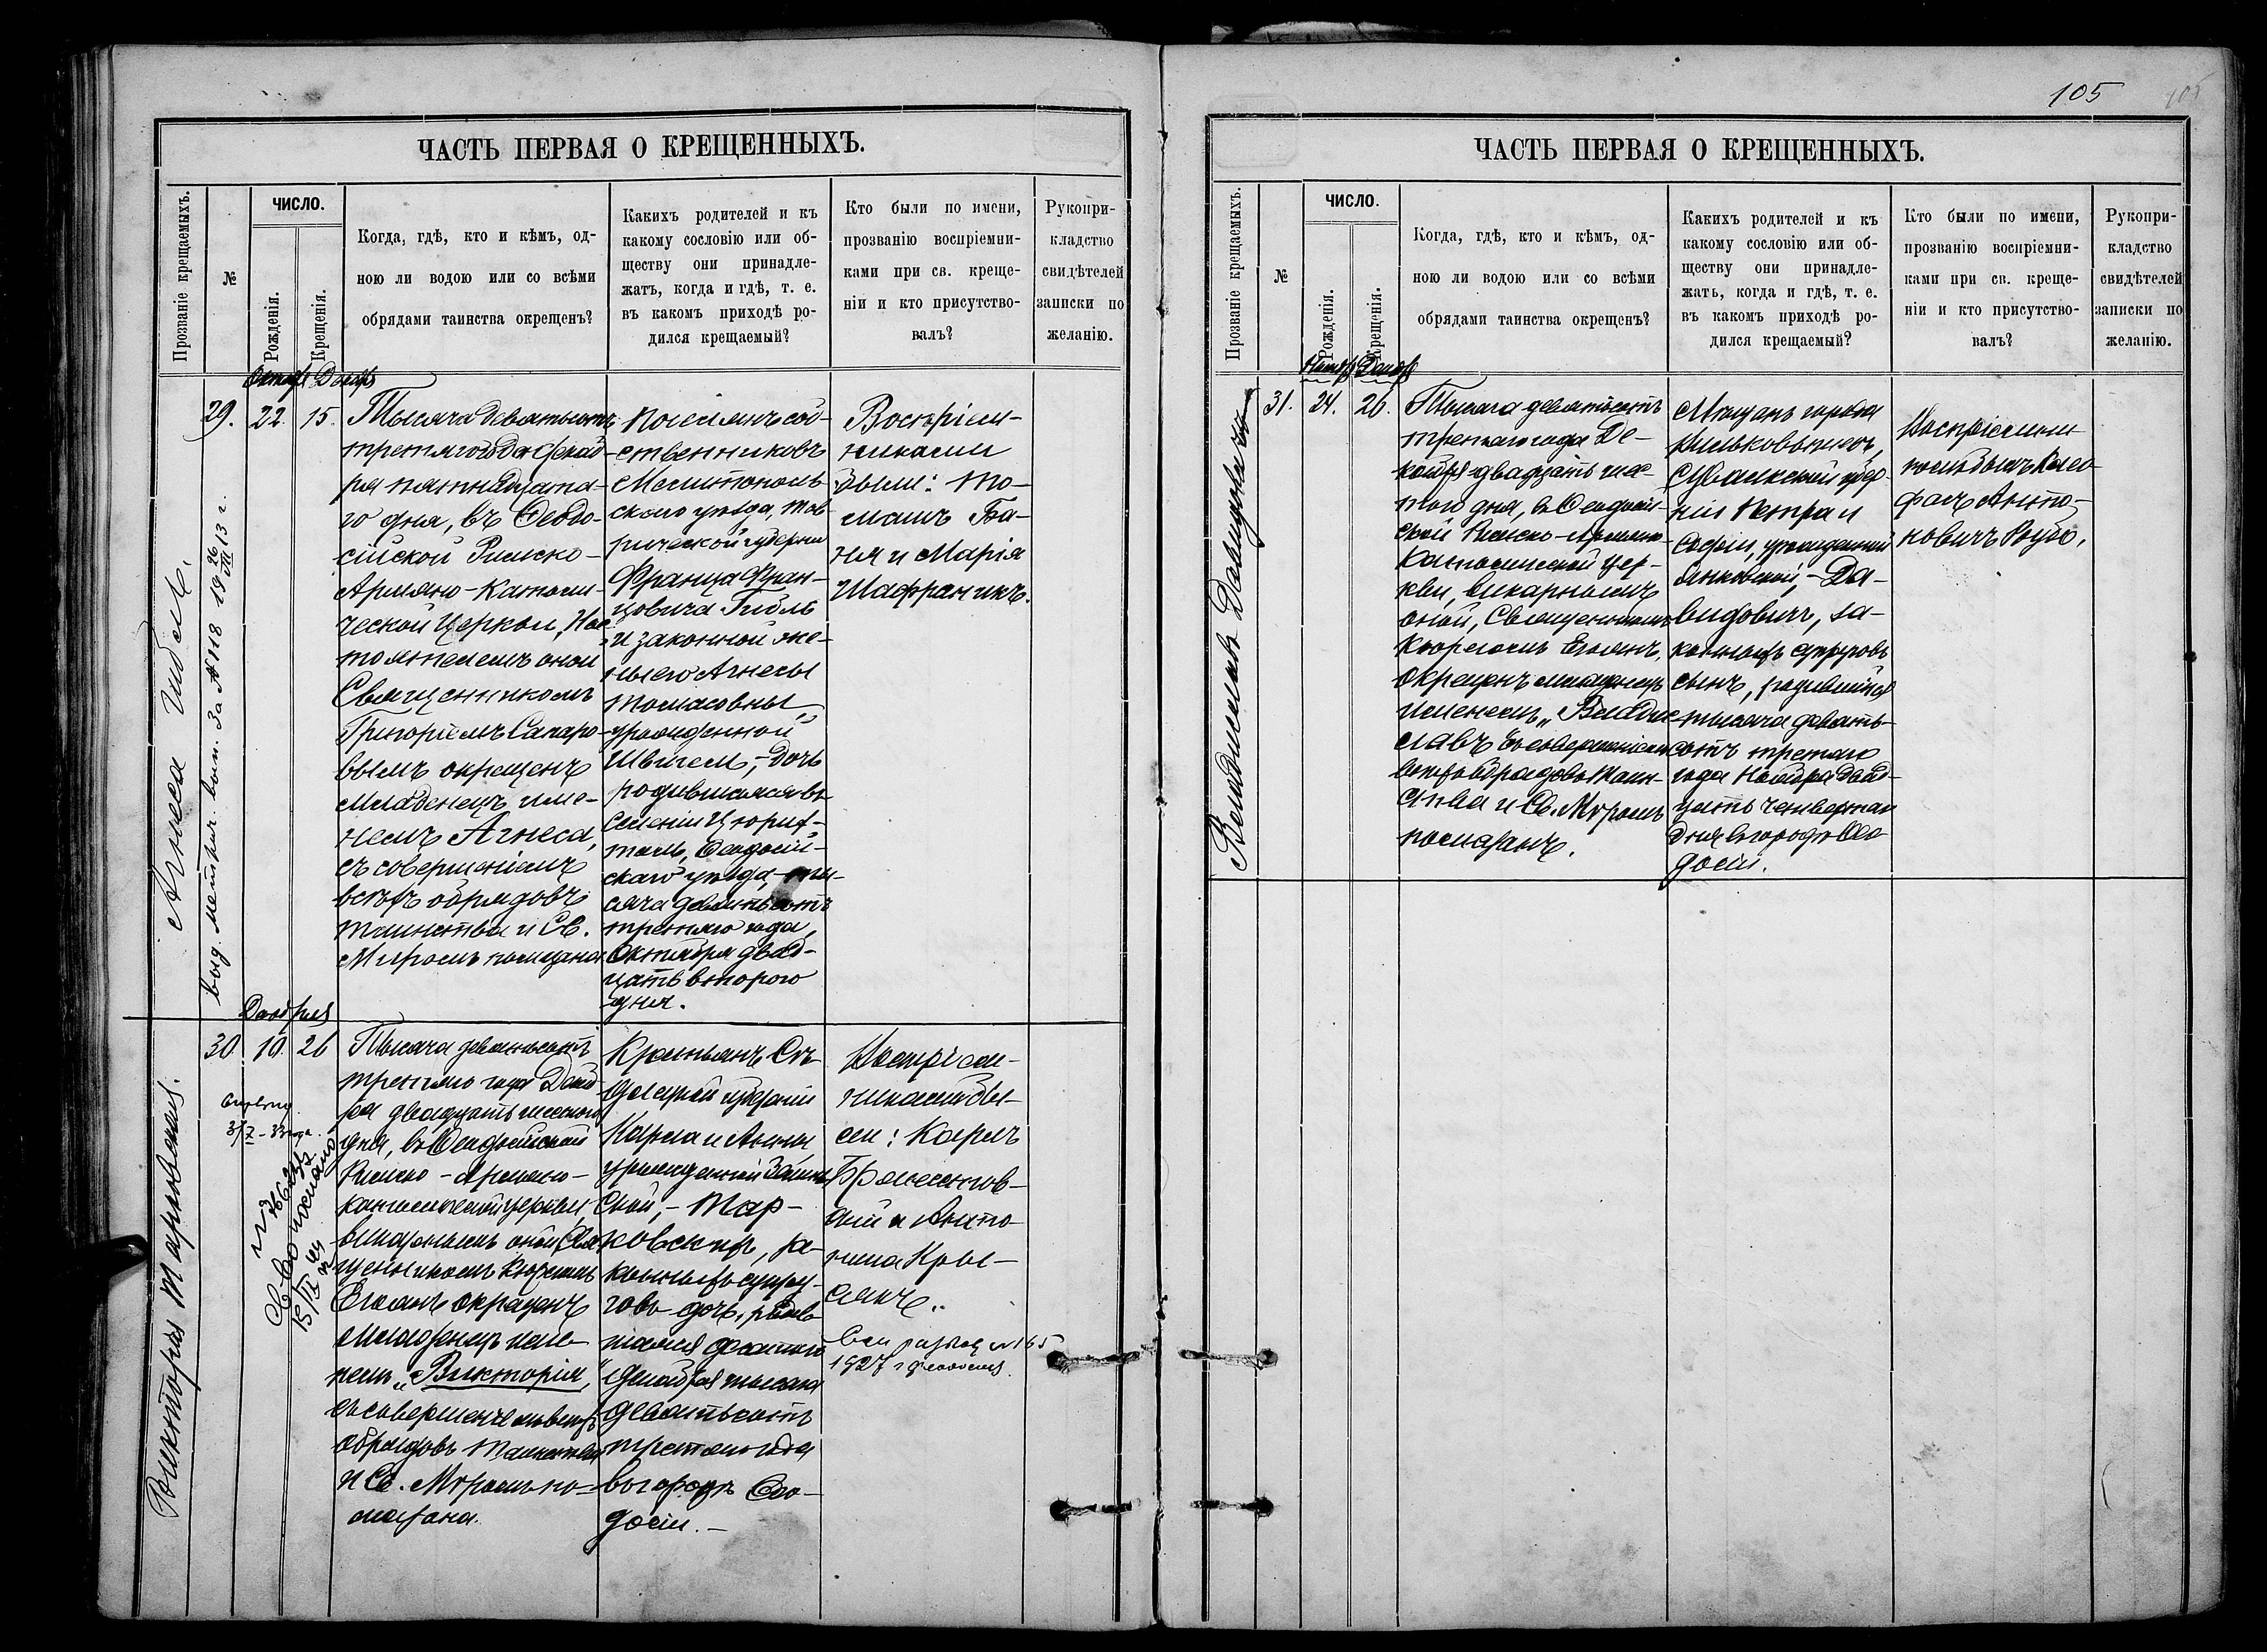 105
105
ЧАСТЬ ПЕРВАЯ О КРЕЩЕННЫХЪ.
Прозваніе крещаемыхъ.
№
ЧИСЛО.
Рожденія.
Крещенія.
Когда, гдѣ, кто и кѣмъ, од-
ною ли водою или со всѣми
обрядами таинства окрещенъ?
Какихъ родителей и къ
какому сословію или об-
ществу они принадле-
жатъ, когда и гдѣ, т. е.
въ какомъ приходѣ ро-
дился крещаемый?
Кто были по имени,
прозванію воспріемни-
ками при св. креще-
ніи и кто присутство-
валъ?
Рукопри-
кладство
свидѣтелей
записки по
желанію.
Агнеса Гибль.
выд. метрич. вып. за № 118 19 26/VII 13 г.
29. 22. 15.
Тысяча девятьсотъ
третяго года декаб-
ря пятнадцата-
го дня, въ Ѳеодо-
сійской Римско-
Армяно-Католи-
ческой Церкви, Нас-
тоятелемъ оной
Священникомъ
Григоріемъ Сапаро-
вымъ окрещенъ
младенецъ име-
немъ Агнеса,
съ совершеніемъ
всѣхъ обрядовъ
таинства и Св.
Мѵромъ помазана
Поселянъ соб-
ственниковъ
Мелитополь-
скаго уѣзда, Тав-
рической губерніи
Франца Фран-
цовича Гибль
и законной же-
ны его Агнесы
Томасовны,
урожденной
дочь
родившаяся въ
селеніи Цюрих-
таль, Ѳеодосій-
скаго уѣзда, ты-
сяча девятьсотъ
третяго года,
Октября двад-
цать второго
дня.
Воспріем-
никами
были: То-
машъ Ба-
ня и Марія
Шафраникъ.
Виктория Марковская.
Декабря
30. 10. 26
Тысяча девятьсотъ
третяго года Декаб-
ря двадцать шестого
дня, въ Ѳеодосійской
Римско-Армяно-
католической церкви,
викарнымъ оной Свя-
щенникомъ Кюрегомъ
Егоянъ окрещенъ
младенецъ име-
немъ „Викторія",
съ совершеніемъ всѣхъ
обрядовъ Таинства
и Св. Мѵромъ по-
мазана.
Крестьянъ Сѣ-
длецкой губерніи
Карла и Анны,
урожденной
ской, - Мар-
ковскихъ, за-
конныхъ супру-
говъ дочь, родив-
шаяся десятого
декабря тысяча
девятьсотъ
третяго года
въ городѣ Ѳео-
досіи. -
Воспріем-
никами бы-
ли: Карлъ
и Анто-
нина
1927 г
ЧАСТЬ ПЕРВАЯ О КРЕЩЕННЫХЪ.
Прозваніе крещаемыхъ.
№
ЧИСЛО.
Рожденія.
Крещенія.
Когда, гдѣ, кто и кѣмъ, од-
ною ли водою или со всѣми
обрядами таинства окрещенъ?
Какихъ родителей и къ
какому сословію или об-
ществу они принадле-
жатъ, когда и гдѣ, т. е.
въ какомъ приходѣ ро-
дился крещаемый?
Кто были по имени,
прозванію воспріемни-
ками при св. креще-
ніи и кто присутство-
валъ?
Рукопри-
кладство
свидѣтелей
записки по
желанію.
Владиславъ Давидовичъ
31. 24. 26.
Тысяча девятьсотъ
третяго года Де-
кабря двадцать шес-
того дня, въ Ѳеодосій-
ской Римско-Армяно-
Католической цер-
кви, викарнымъ
оной, Священникомъ
Кюрегомъ Егоянъ,
окрещенъ младенецъ
именемъ „Влади-
славъ" съ совершеніемъ
всѣхъ обрядовъ Таин-
ства и Св. Мѵромъ
помазанъ.
Мѣщанъ города
Сувалкской губер-
ніи Петра и
Софіи, урожденной
Янковской, - Да-
видовичъ, за-
конныхъ супруговъ
сынъ, родившійся
тысяча девять-
сотъ третяго
года Ноября двад-
цать четвертаго
дня въ городѣ Ѳео-
досіи.
Воспріемни-
комъ былъ
Анто-
новичъ